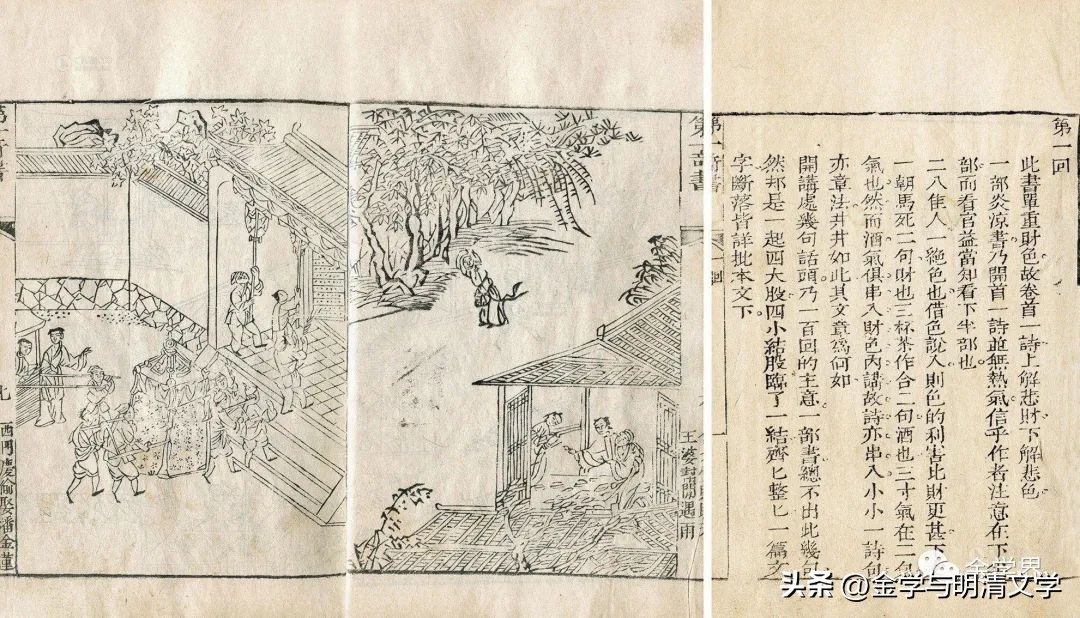 第一回
此書單重財色故卷首一詩上解悲財下解悲色
一部炎凉書乃開首一詩並無熱氣信乎作者注意在下半
部而看官益當知看下半部也
二八佳人一絕色也借色說入則色的利害比財更甚下
一朝馬死二句財也三杯茶作合二句酒也三寸氣在二句
氣也然而酒氣俱串入財色內講故詩亦串入小小一詩句
亦章法井井如此其文章為何如
開講處幾句話頭乃一百回的主意一部書總不出此幾句
然却是一起四大股四小結股臨了一結齊匕整匕一篇文
字斷落皆詳批本文下
第一奇書
一回
第一奇書
王婆幫閒遇雨
第一奇書
西門慶偷娶潘金蓮
金学界
头条 @金学与明清文学